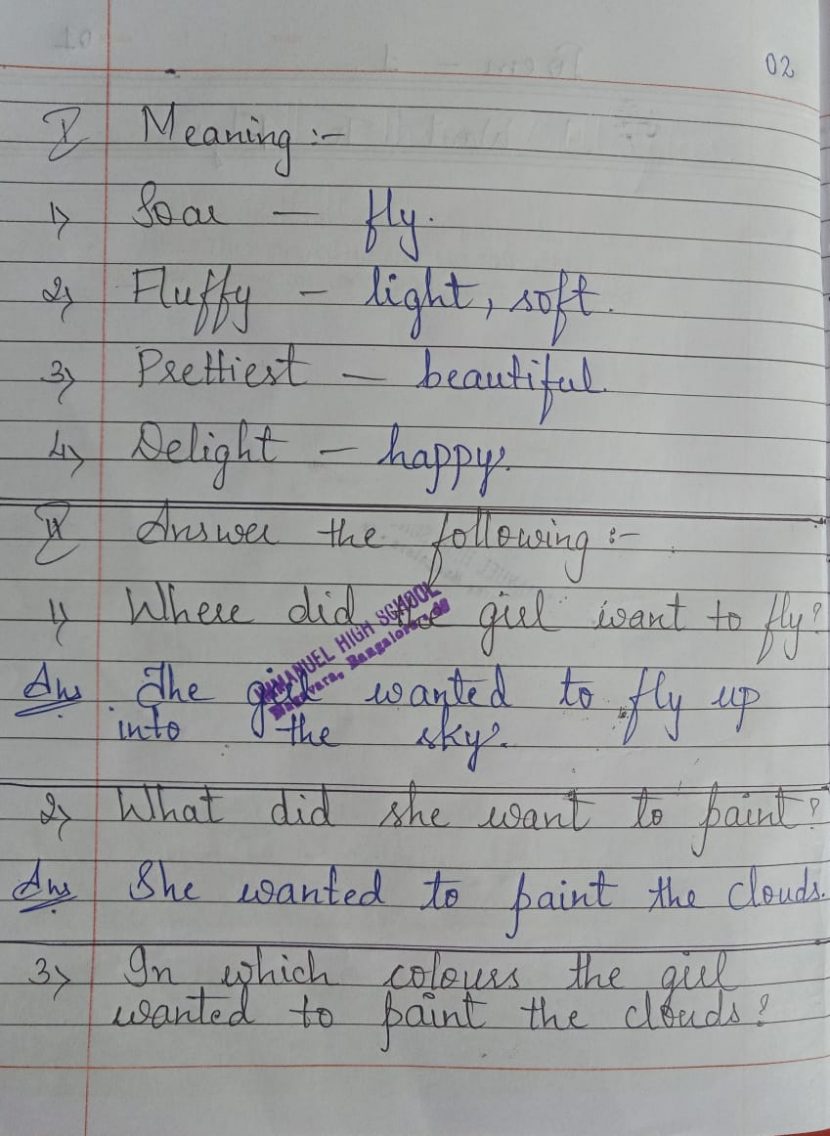 02
I Meaning :-
1) Soar — fly.
2) Fluffy — light, soft.
3) Prettiest — beautiful.
4) Delight — happy.
II Answer the following :-
1) Where did the girl want to fly?
IMMANUEL HIGH SCHOOL
Ans The girl wanted to fly up
into the sky.
2) What did she want to paint?
Ans She wanted to paint the clouds.
3) In which colours the girl
wanted to paint the clouds?